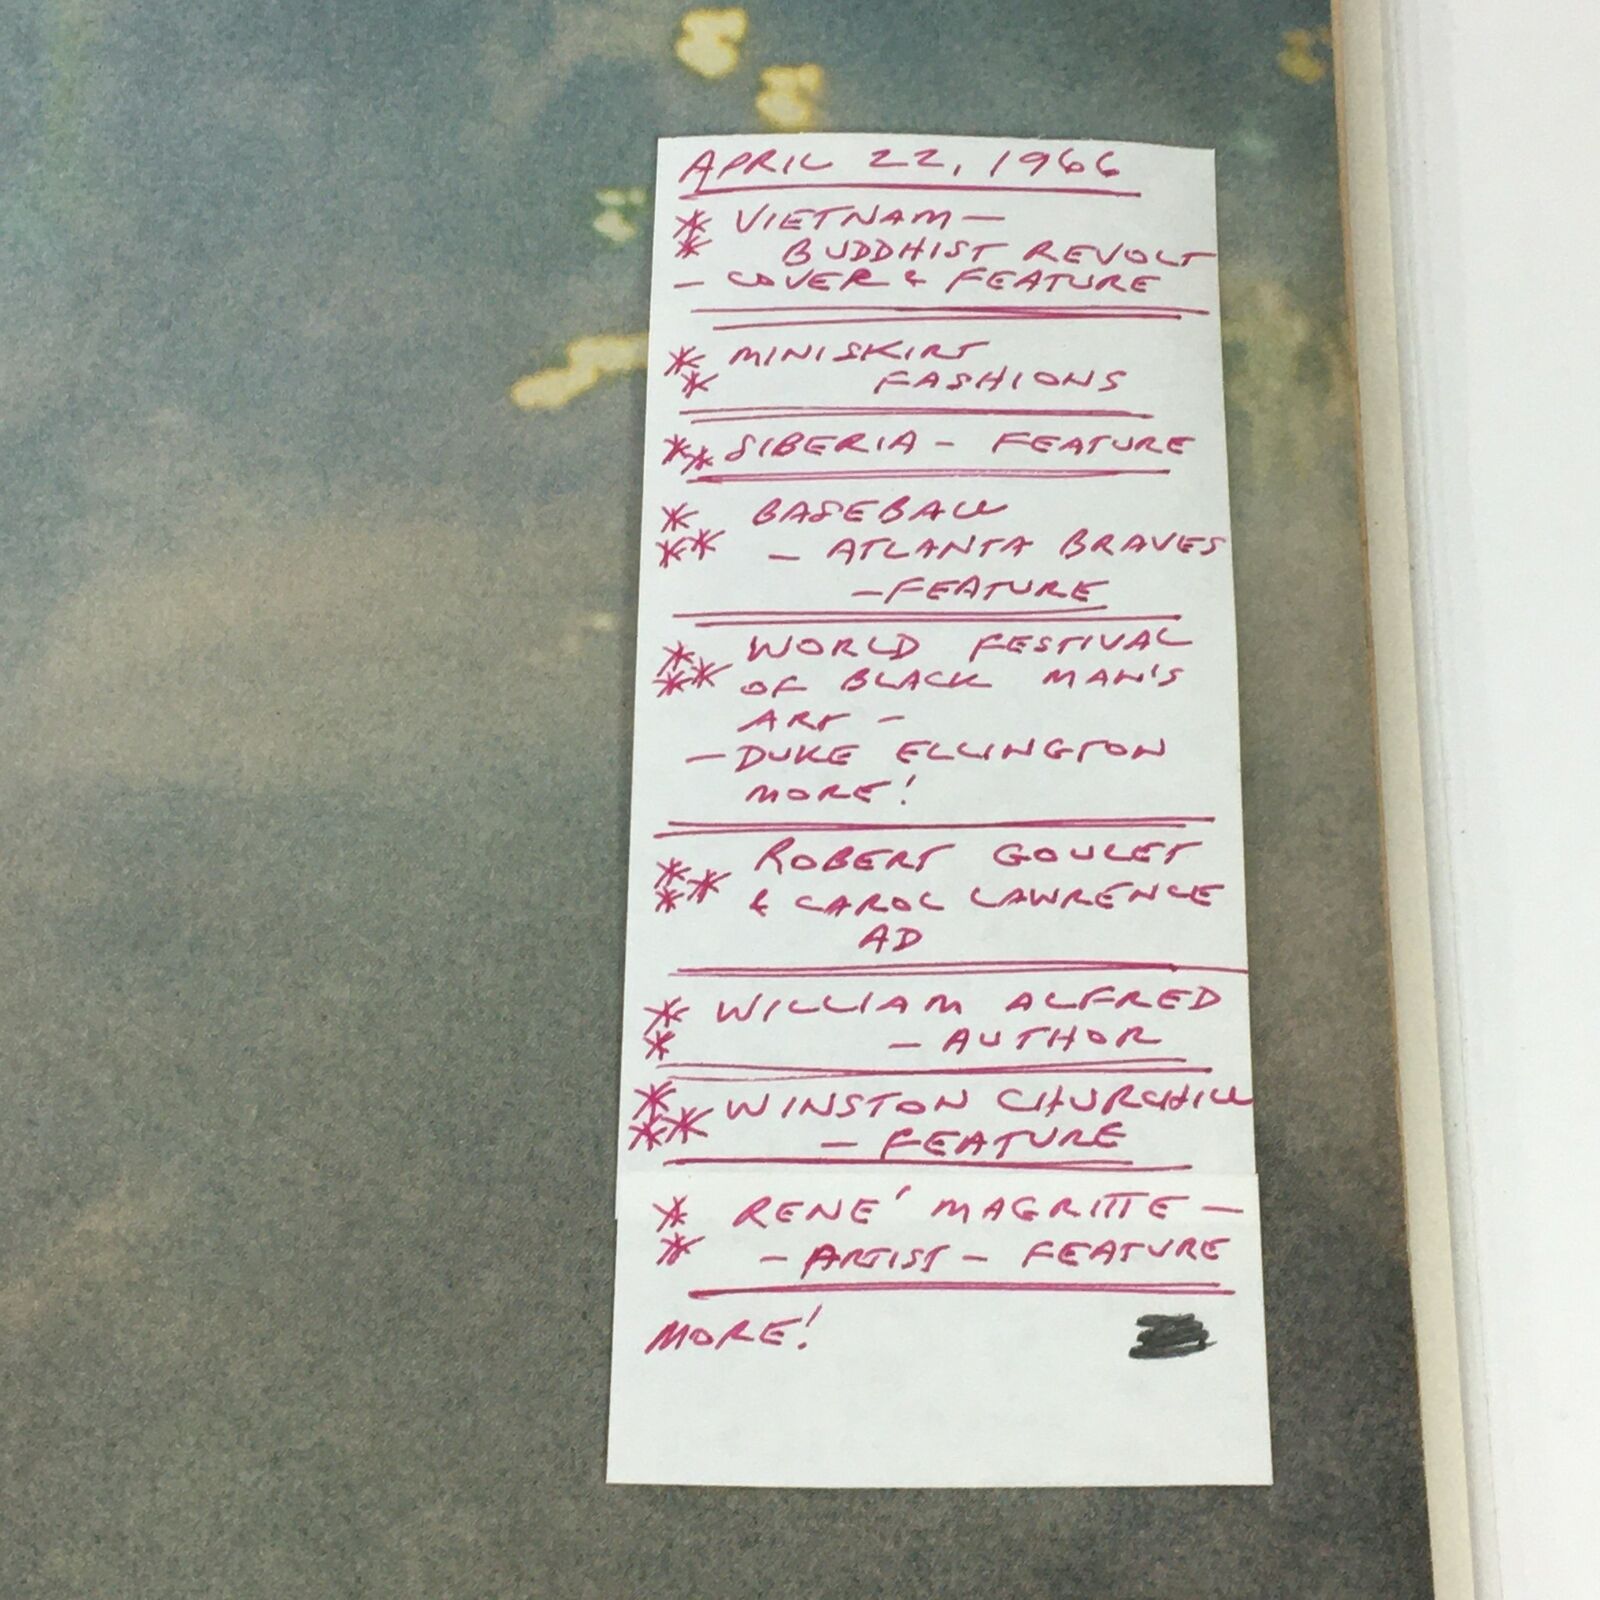 APRIL 22, 1966
* VIETNAM —
* BUDDHIST REVOLT
— COVER & FEATURE
* MINISKIRT
* FASHIONS
** SIBERIA - FEATURE
* BASEBALL
** — ATLANTA BRAVES
— FEATURE
* WORLD FESTIVAL
** OF BLACK MAN'S
ART —
— DUKE ELLINGTON
MORE!
* ROBERT GOULET
** & CAROL LAWRENCE
AD
* WILLIAM ALFRED
* — AUTHOR
* WINSTON CHURCHILL
** — FEATURE
* RENE' MAGRITTE —
* — ARTIST — FEATURE
MORE!